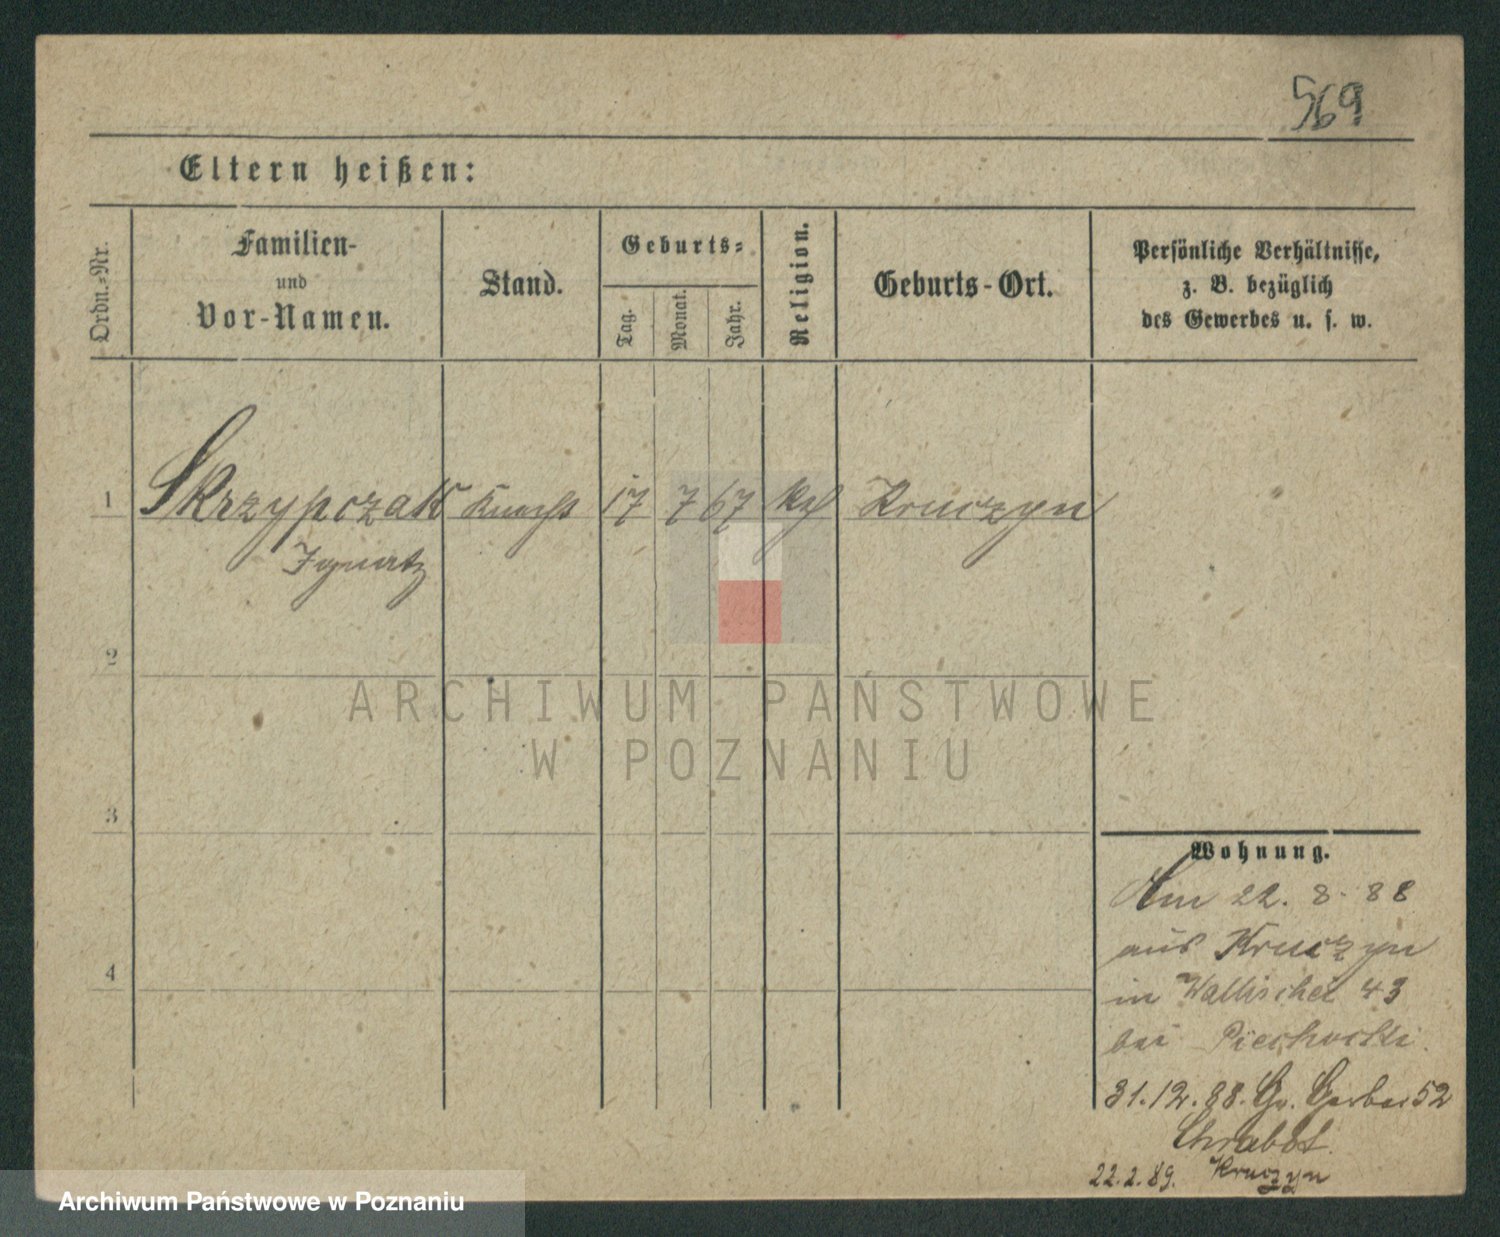 569
Eltern heißen:
Ordn.-Nr.
Familien-
und
Vor-Namen.
Stand.
Geburts-
Tag.
Monat.
Jahr.
Religion.
Geburts-Ort.
Persönliche Verhältnisse,
z. B. bezüglich
des Gewerbes u. s. w.
1 Skrzypczak Knecht 17 7 67 kath Kruczyn
Ignatz
2
3
4
Wohnung.
Am 22. 8. 88
aus Kruczyn
in Wallischei 43
bei Piechocki.
31.12.88. Gr. Gerber 52
Chrabot.
22.2.89. Kruczyn
ARCHIWUM PAŃSTWOWE
W POZNANIU
Archiwum Państwowe w Poznaniu